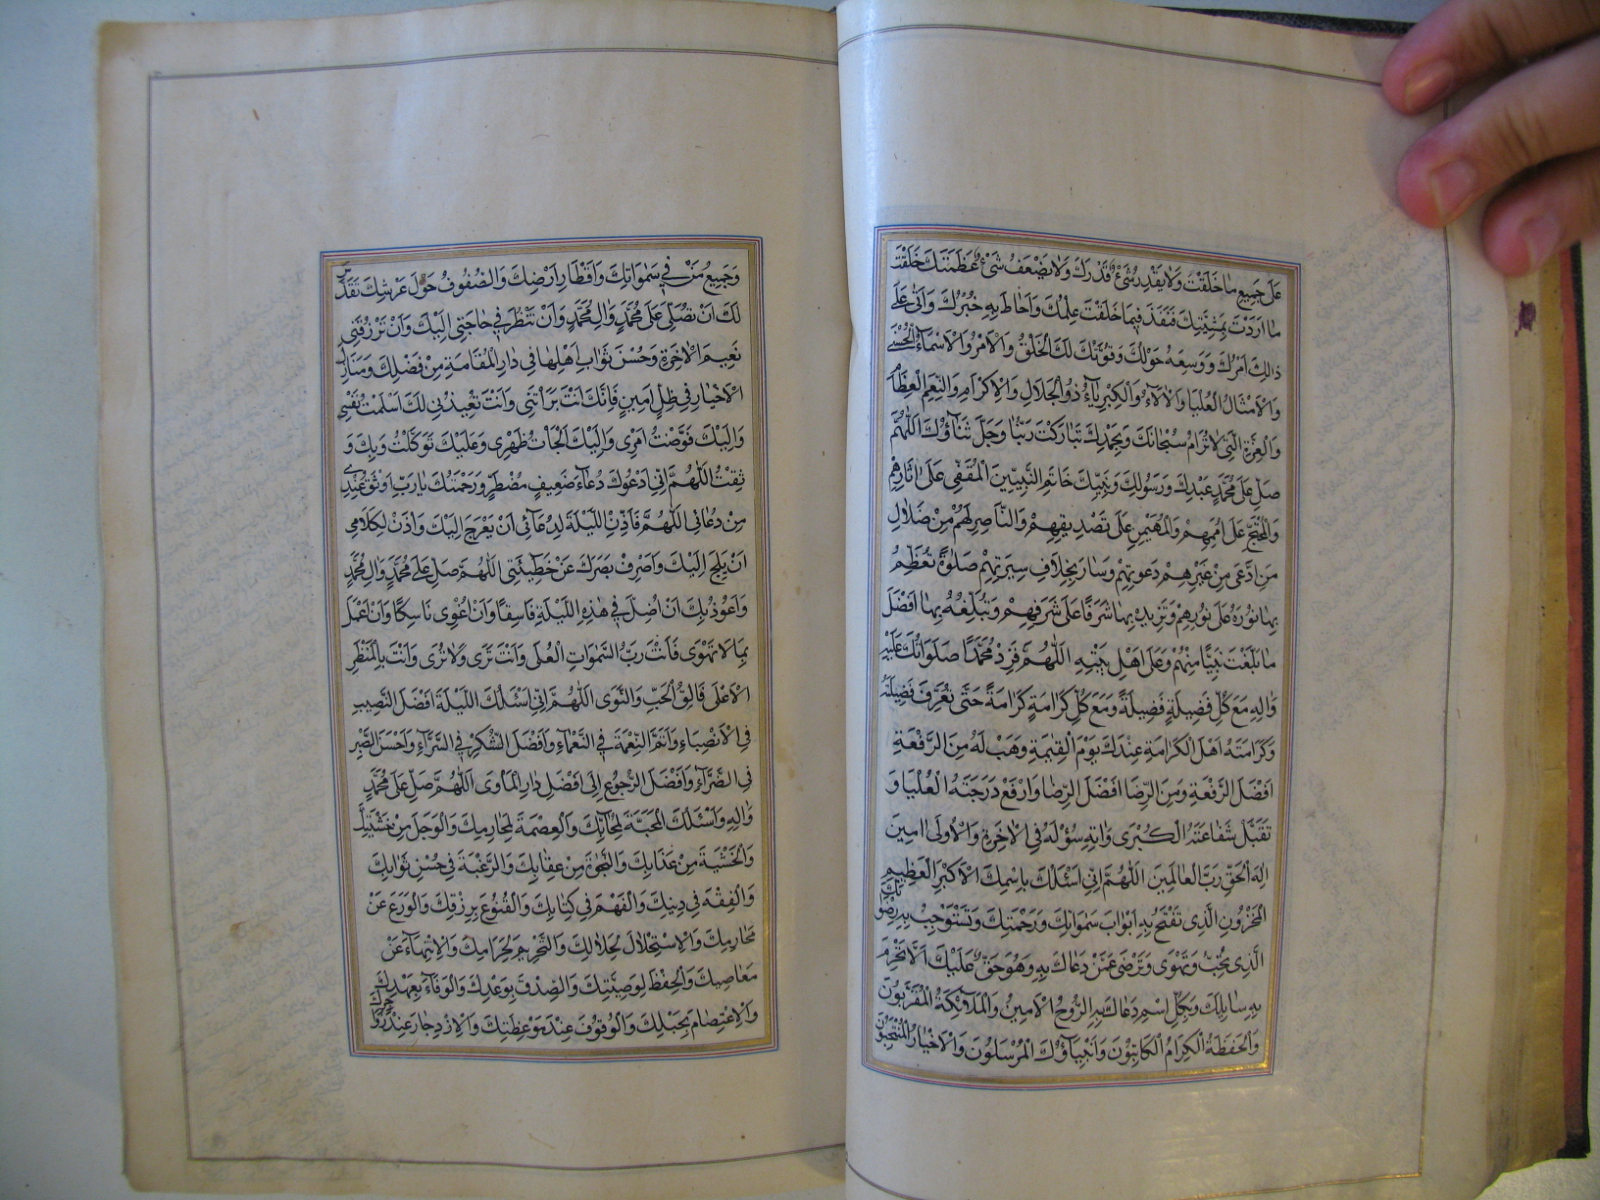 عَلىٰ جَميعِ ما خَلَقْتَ وَلا يَقْدِرُ شَيْءٌ قَدْرَكَ وَلا يُضْعِفُ شَيْءٌ عَظَمَتَكَ خَلَقْتَ
ما اَرَدْتَ بِمَشِيَّتِكَ فَنَفَذَ فيما خَلَقْتَ عِلْمُكَ وَاَحاطَ بِهِ خُبْرُكَ وَاَتىٰ عَلىٰ
ذٰلِكَ اَمْرُكَ وَوَسِعَهُ حَوْلُكَ وَقُوَّتُكَ لَكَ الْخَلْقُ وَالْاَمْرُ وَالْاَسْماءُ الْحُسْنىٰ
وَالْاَمْثالُ الْعُلْيا وَالْاٰلاءُ وَالْكِبْرِياءُ ذُو الْجَلالِ وَالْاِكْرامِ وَالنِّعَمِ الْعِظامِ
وَالْعِزَّةِ الَّتي لا تُرامُ سُبْحانَكَ وَبِحَمْدِكَ تَبارَكْتَ رَبَّنا وَجَلَّ ثَناؤُكَ اَللّٰهُمَّ
صَلِّ عَلىٰ مُحَمَّدٍ عَبْدِكَ وَرَسُولِكَ وَنَبِيِّكَ خاتَمِ النَّبِيّينَ الْمُقَفّىٰ عَلىٰ اٰثارِهِمْ
وَالْمُحْتَجِّ عَلىٰ اُمَمِهِمْ وَالْمُهَيْمِنِ عَلىٰ تَصْديقِهِمْ وَالنّاصِرِ لَهُمْ مِنْ ضَلالِ
مَنِ ادَّعىٰ مِنْ غَيْرِهِمْ دَعْوَتَهُمْ وَسارَ بِخِلافِ سيرَتِهِمْ صَلٰوةً تُعَظِّمُ
بِها نُورَهُ عَلىٰ نُورِهِمْ وَتَزيدُ بِها شَرَفًا عَلىٰ شَرَفِهِمْ وَتُبَلِّغُهُ بِها اَفْضَلَ
ما بَلَّغْتَ نَبِيًّا مِنْهُمْ وَعَلىٰ اَهْلِ بَيْتِهِ اَللّٰهُمَّ فَزِدْ مُحَمَّدًا صَلَواتُكَ عَلَيْهِ
وَاٰلِهِ مَعَ كُلِّ فَضيلَةٍ فَضيلَةً وَمَعَ كُلِّ كَرامَةٍ كَرامَةً حَتّىٰ تُعَرِّفَ فَضيلَتَهُ
وَكَرامَتَهُ اَهْلَ الْكَرامَةِ عِنْدَكَ يَوْمَ الْقِيٰمَةِ وَهَبْ لَهُ مِنَ الرِّفْعَةِ
اَفْضَلَ الرِّفْعَةِ وَمِنَ الرِّضا اَفْضَلَ الرِّضا وَارْفَعْ دَرَجَتَهُ الْعُلْيا وَ
تَقَبَّلْ شَفاعَتَهُ الْكُبْرىٰ وَاٰتِهِ سُؤْلَهُ فِي الْاٰخِرَةِ وَالْاُولىٰ اٰمينَ
اِلٰهَ الْحَقِّ رَبَّ الْعالَمينَ اَللّٰهُمَّ اِنّي اَسْئَلُكَ بِاسْمِكَ الْاَكْبَرِ الْعَظيمِ
الْمَخْزُونِ الَّذي تَفْتَحُ بِهِ اَبْوابَ سَمٰواتِكَ وَرَحْمَتِكَ وَتَسْتَوْجِبُ بِهِ رِضْوانَكَ
الَّذي تُحِبُّ وَتَهْوىٰ وَتَرْضىٰ عَمَّنْ دَعاكَ بِهِ وَهُوَ حَقٌّ عَلَيْكَ اَلّا تَحْرِمَ
بِهِ سائِلَكَ وَبِكُلِّ اسْمٍ دَعاكَ بِهِ الرُّوحُ الْاَمينُ وَالْمَلائِكَةُ الْمُقَرَّبُونَ
وَالْحَفَظَةُ الْكِرامُ الْكاتِبُونَ وَاَنْبِياؤُكَ الْمُرْسَلُونَ وَالْاَخْيارُ الْمُنْتَجَبُونَ
وَجَميعُ مَنْ في سَمٰواتِكَ وَاَقْطارِ اَرْضِكَ وَالصُّفُوفُ حَوْلَ عَرْشِكَ تُقَدِّسُ
لَكَ اَنْ تُصَلِّيَ عَلىٰ مُحَمَّدٍ وَاٰلِ مُحَمَّدٍ وَاَنْ تَنْظُرَ في حاجَتي اِلَيْكَ وَاَنْ تَرْزُقَني
نَعيمَ الْاٰخِرَةِ وَحُسْنَ ثَوابِ اَهْلِها في دارِ الْمُقامَةِ مِنْ فَضْلِكَ وَمَنازِلَ
الْاَخْيارِ في ظِلٍّ اَمينٍ فَاِنَّكَ اَنْتَ بَرَأْتَني وَاَنْتَ تُعيدُني لَكَ اَسْلَمْتُ نَفْسي
وَاِلَيْكَ فَوَّضْتُ اَمْري وَاِلَيْكَ اَلْجَأْتُ ظَهْري وَعَلَيْكَ تَوَكَّلْتُ وَبِكَ وَ
ثِقْتُ اَللّٰهُمَّ اِنّي اَدْعُوكَ دُعاءَ ضَعيفٍ مُضْطَرٍّ وَرَحْمَتُكَ يا رَبِّ اَوْثَقُ عِنْدي
مِنْ دُعائي اَللّٰهُمَّ فَأْذَنِ اللَّيْلَةَ لِدُعائي اَنْ يَعْرُجَ اِلَيْكَ وَاْذَنْ لِكَلامي
اَنْ يَلِجَ اِلَيْكَ وَاصْرِفْ بَصَرَكَ عَنْ خَطيئَتي اَللّٰهُمَّ صَلِّ عَلىٰ مُحَمَّدٍ وَاٰلِ مُحَمَّدٍ
وَاَعُوذُ بِكَ اَنْ اَضِلَّ في هٰذِهِ اللَّيْلَةِ فاسِقًا وَاَنْ اَغْوىٰ ناسِكًا وَاَنْ اَعْمَلَ
بِما لا تَهْوىٰ فَاَنْتَ رَبُّ السَّمٰواتِ الْعُلىٰ وَاَنْتَ تَرىٰ وَلا تُرىٰ وَاَنْتَ بِالْمَنْظَرِ
الْاَعْلىٰ فالِقُ الْحَبِّ وَالنَّوىٰ اَللّٰهُمَّ اِنّي اَسْئَلُكَ اللَّيْلَةَ اَفْضَلَ النَّصيبِ
فِي الْاَنْصِباءِ وَاَتَمَّ النِّعْمَةِ فِي النَّعْماءِ وَاَفْضَلَ الشُّكْرِ فِي السَّرّاءِ وَاَحْسَنَ الصَّبْرِ
فِي الضَّرّاءِ وَاَفْضَلَ الرُّجُوعِ اِلىٰ اَفْضَلِ دارِ الْمَأْوىٰ اَللّٰهُمَّ صَلِّ عَلىٰ مُحَمَّدٍ
وَاٰلِهِ وَاَسْئَلُكَ الْمَحَبَّةَ لِمَحابِّكَ وَالْعِصْمَةَ لِمَحارِمِكَ وَالْوَجَلَ مِنْ خَشْيَتِكَ
وَالْخَشْيَةَ مِنْ عَذابِكَ وَالنَّجٰوةَ مِنْ عِقابِكَ وَالرَّغْبَةَ في حُسْنِ ثَوابِكَ
وَالْفِقْهَ في دينِكَ وَالْفَهْمَ في كِتابِكَ وَالْقُنُوعَ بِرِزْقِكَ وَالْوَرَعَ عَنْ
مَحارِمِكَ وَالْاِسْتِحْلالَ لِحَلالِكَ وَالتَّحْريمَ لِحَرامِكَ وَالْاِنْتِهاءَ عَنْ
مَعاصيكَ وَالْحِفْظَ لِوَصِيَّتِكَ وَالصِّدْقَ بِوَعْدِكَ وَالْوَفاءَ بِعَهْدِكَ
وَالْاِعْتِصامَ بِحَبْلِكَ وَالْوُقُوفَ عِنْدَ مَوْعِظَتِكَ وَالْاِزْدِجارَ عِنْدَ زَواجِرِكَ